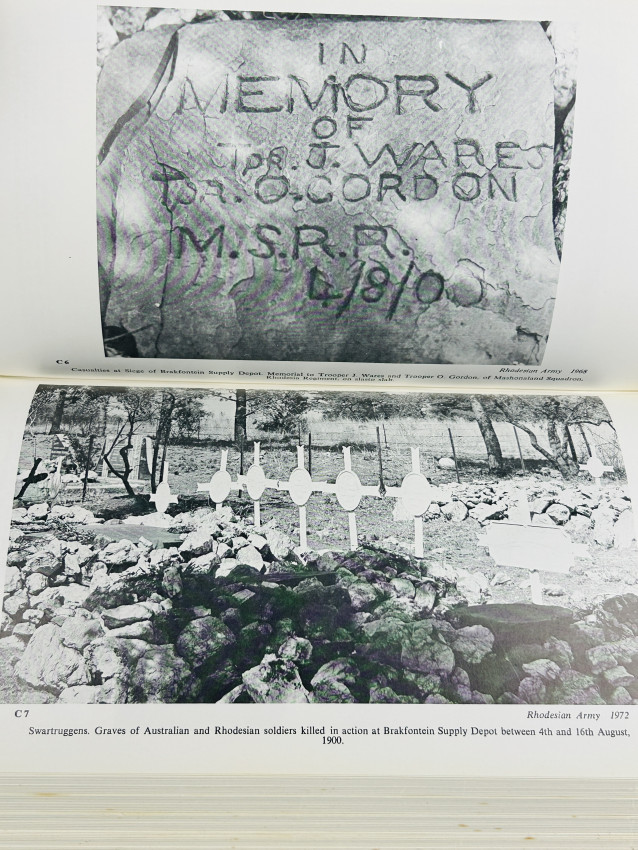 IN
MEMORY
OF
Tpr. J. WARES
Tpr. O. GORDON
M.S.R.R.
4/8/00
C 6
Rhodesian Army 1968
Casualties at Siege of Brakfontein Supply Depot. Memorial to Trooper J. Wares and Trooper O. Gordon, of Mashonaland Squadron,
Rhodesia Regiment, on slate slab.
C 7
Rhodesian Army 1972
Swartruggens. Graves of Australian and Rhodesian soldiers killed in action at Brakfontein Supply Depot between 4th and 16th August,
1900.